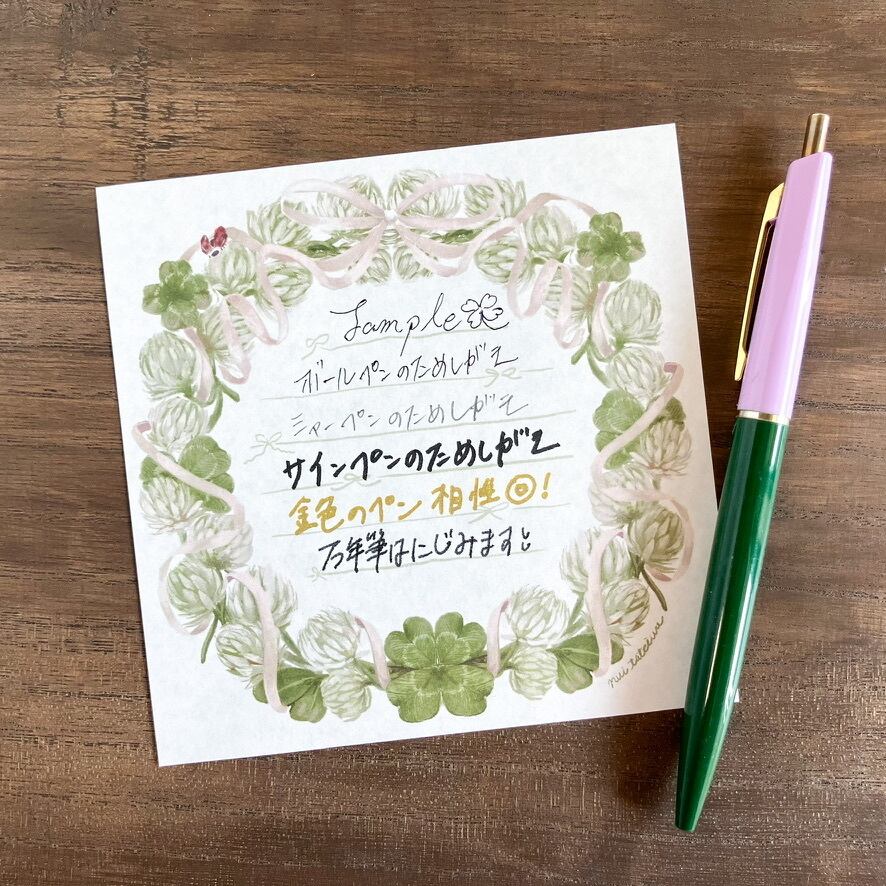 Sample
ボールペンのためしがき
シャーペンのためしがき
サインペンのためしがき
金色のペン 相性◎!
万年筆はにじみます
nui tateiwa